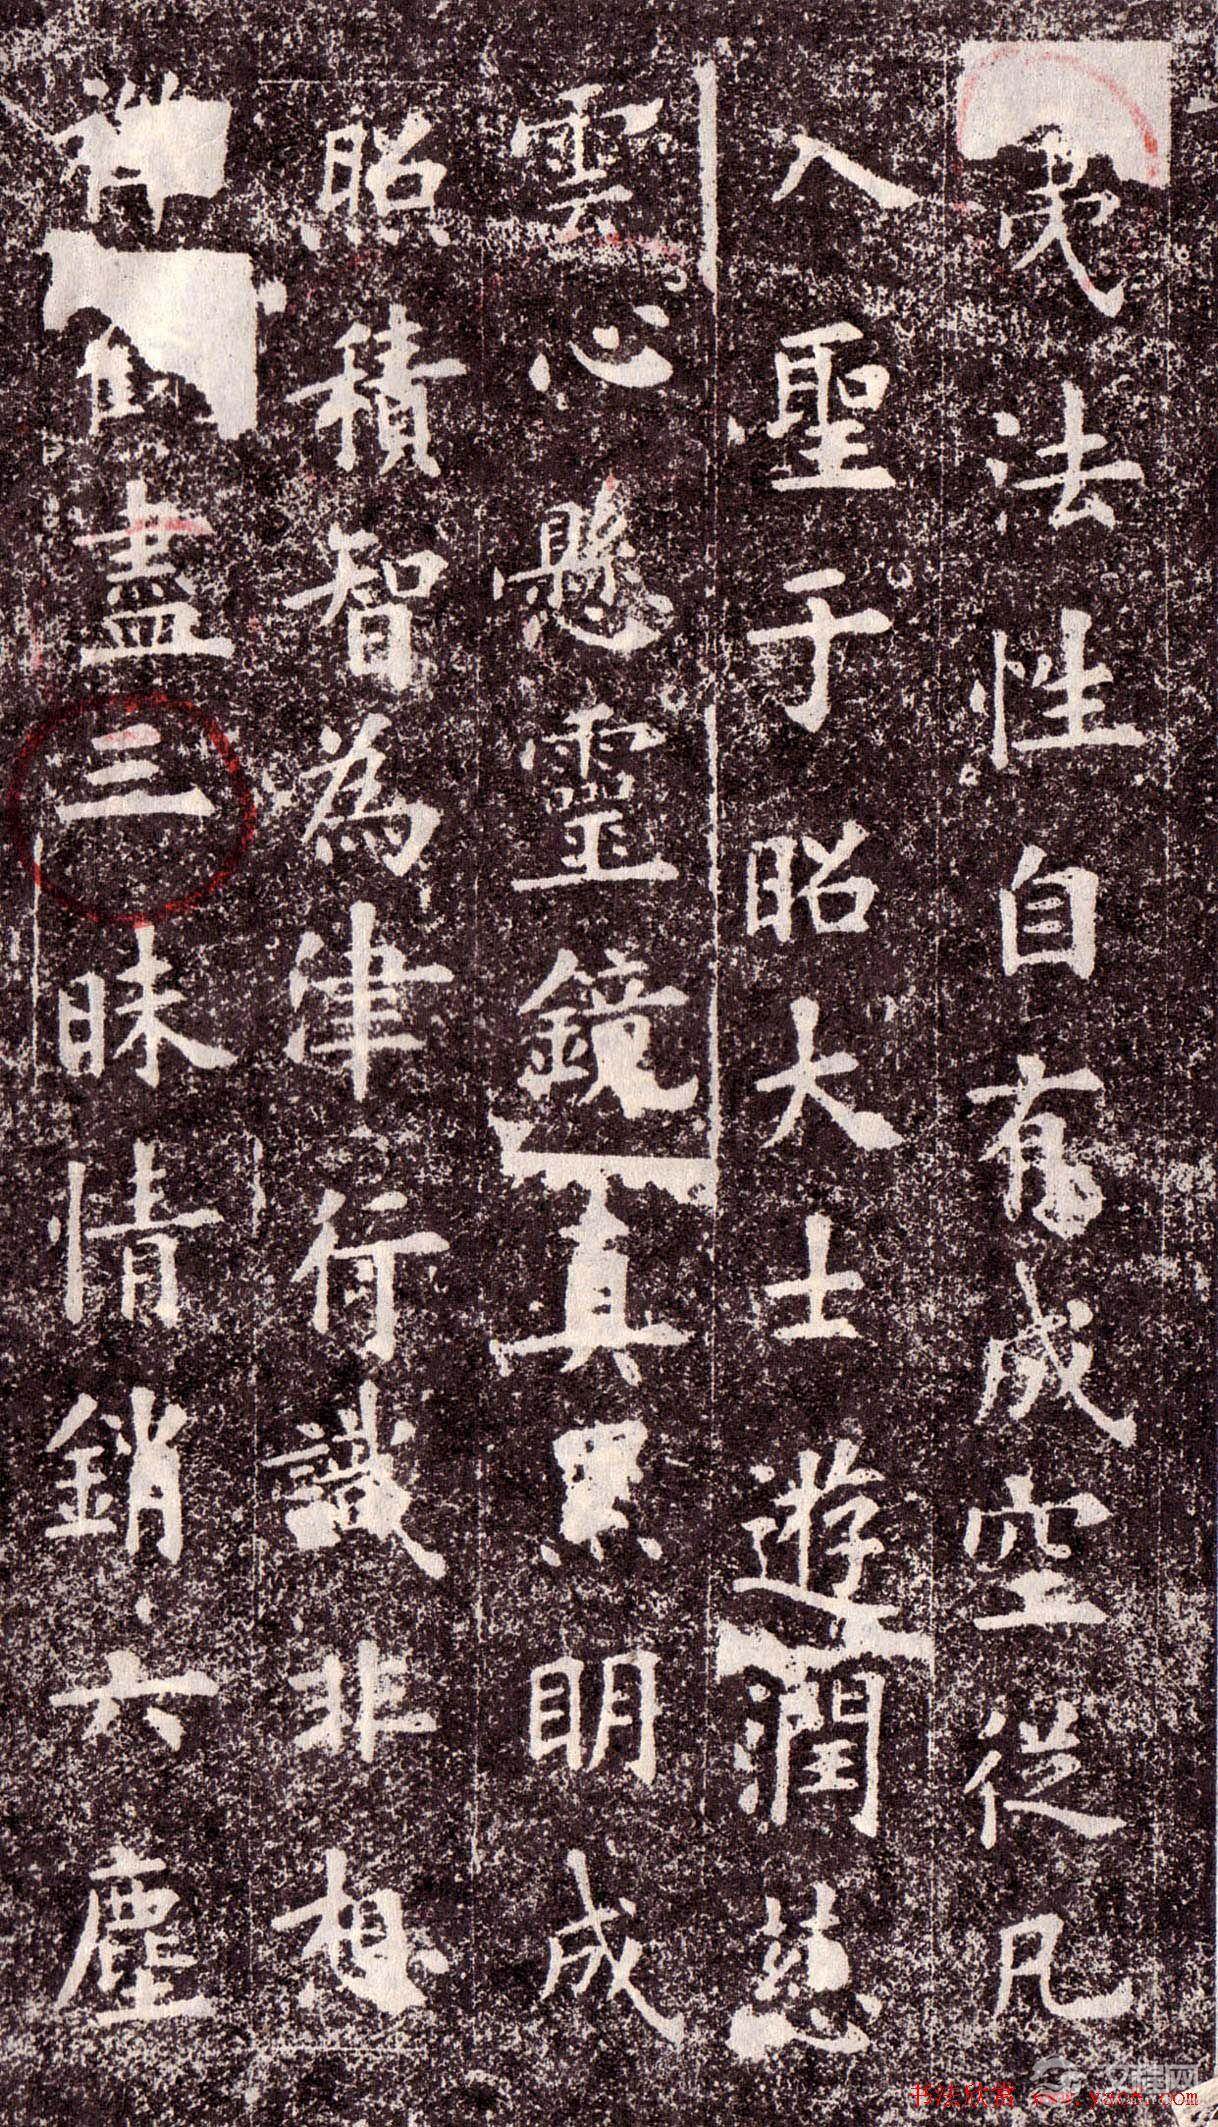 法性自有成空從凡
入聖于昭大士遊潤慈
雲心懸靈鏡真累明成
照積智為津行識非想
禪
盡三昧情銷六塵
书法欣赏